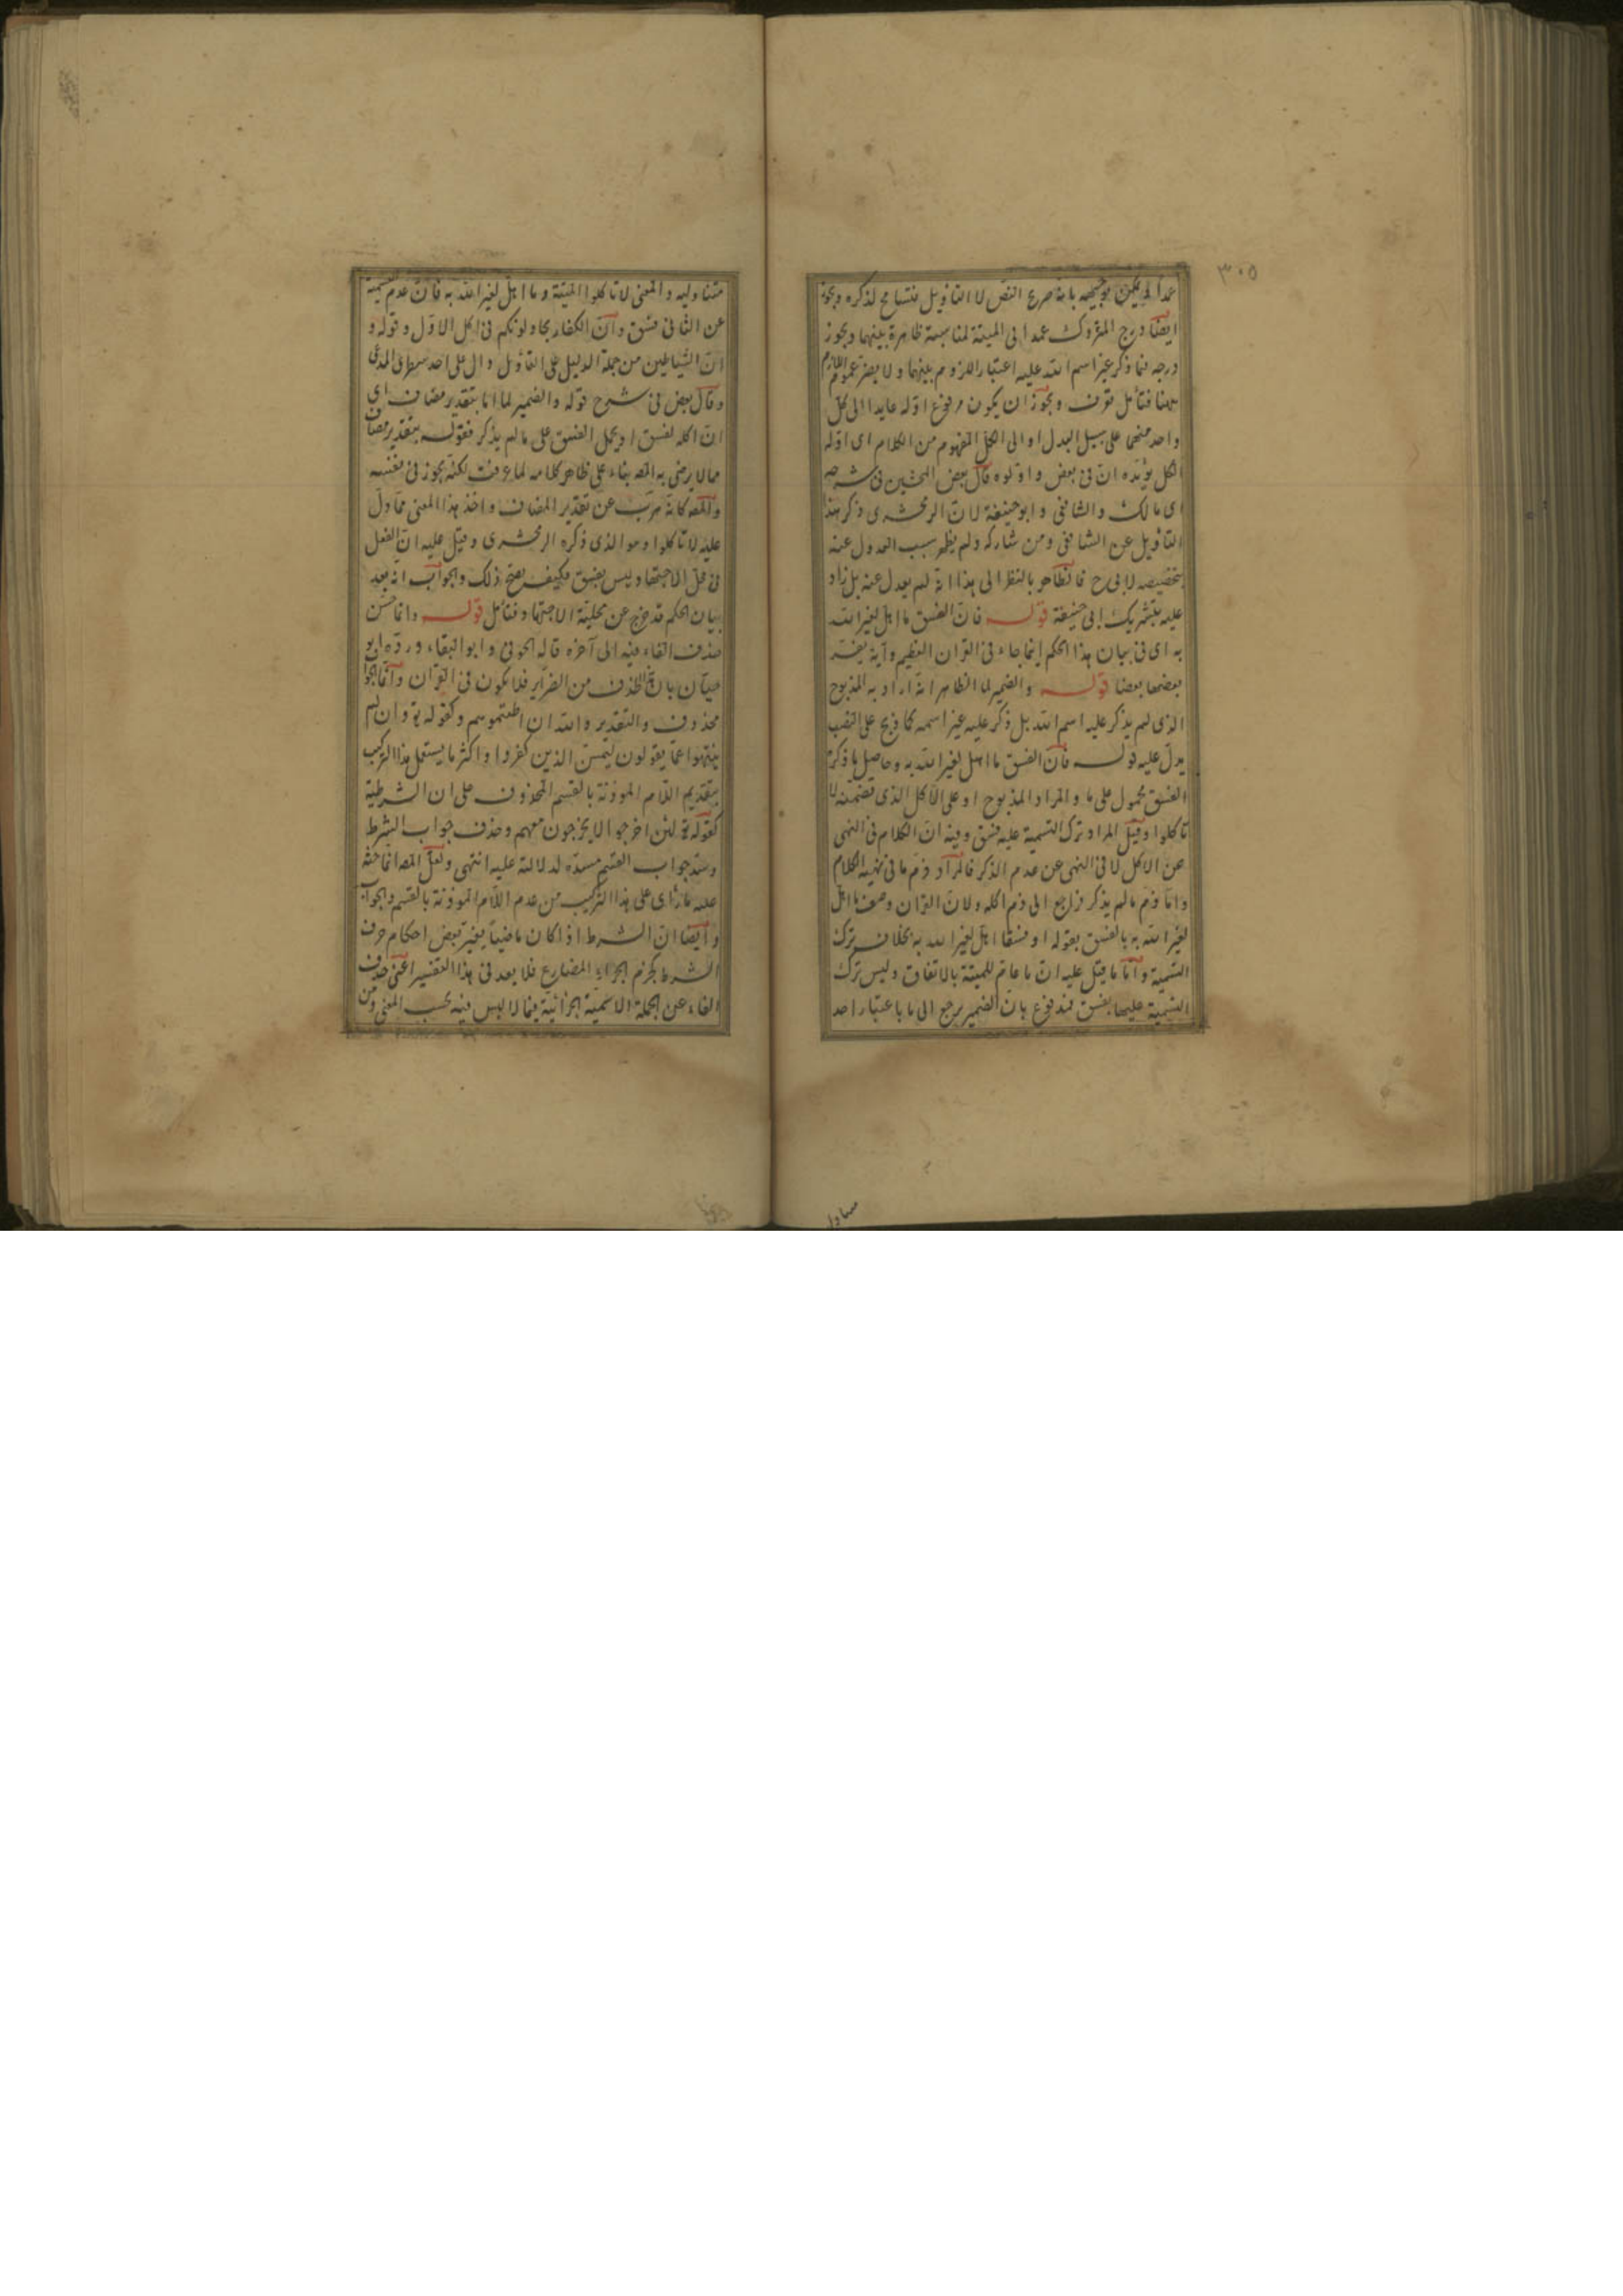 ٣٠٥
عمدا لم يمكن توجيهه بانه صريح النص لا التأويل فتسامح لذكره ويجوز
ايضا درج المتروك عمدا الى الميتة لمناسبة ظاهرة بينهما ويجوز
درجه فيما ذكر غير اسم الله عليه اعتبار اللزوم بينهما ولا يضر عموم اللازم
ههنا فتأمل تعرف ويجوز ان يكون مرفوع اوّله عايدا الى كل
واحد منهما على سبيل البدل او الى الكل المفهوم من الكلام اى اوّله
الكل يؤيده انّ فى بعض واوّلوه قال بعض المحشين فى شرحه
اى مالك والشافعى وابو حنيفة لانّ الزمخشرى ذكر هذا
التأويل عن الشافعى ومن شاركه ولم يظهر سبب العدول عنه
بتخصيصه لابى ح فالظاهر بالنظر الى هذا انه لم يعدل عنه بل زاد
عليه بتشريك ابى حنيفة قوله فانّ الفسق ما اهل لغير الله
به اى فى بيان هذا الحكم انما جاء فى القران العظيم وآية يفسّر
بعضها بعضا قوله والضمير لما الظاهر انه اراد به المذبوح
الذى لم يذكر عليه اسم الله بل ذكر عليه غير اسمه كما ذبح على النصب
يدلّ عليه قوله فانّ الفسق ما اهل لغير الله به وحاصل ما ذكره
الفسق محمول على ما والمراد المذبوح او على الاكل الذى تضمنه لا
تأكلوا وقيل المراد ترك التسمية عليه فسق وفيه انّ الكلام فى النهى
عن الاكل لا فى النهى عن عدم الذكر فالمراد ذم ما فى نهيه الكلام
وانّا ذم ما لم يذكر فراجع الى ذم اكله ولانّ القران وصف ما اهل
لغير الله به بالفسق بقوله او فسقا اهلّ لغير الله به بخلاف ترك
التسمية وامّا ما قيل عليه انّ ما عامّ للميتة بالاتفاق وليس ترك
التسمية عليها بفسق فمدفوع بان الضمير يرجع الى ما باعتبار احد
متناوليه والمعنى لا تأكلوا الميتة وما اهلّ لغير الله به فانّ عدم تسمية
عن الثانى فسق وانّ الكفار يجادلونكم فى اكل الاوّل وقوله و
انّ الشياطين من جملة الدليل على التأويل دال على احد شطرى المدعى
وقال بعض فى شرح قوله والضمير لما امّا بتقدير مضاف اى
انّ اكله لفسق او يحمل الفسق على ما لم يذكر فقوله بتقدير مضاف
مما لا يرضى به المص بناء على ظاهر كلامه لما عرفت لكنّه يجوز فى نفسه
والمص كانّه هرب عن تقدير المضاف واخذ هذا المعنى مما دلّ
عليه لا تأكلوا وهو الذى ذكره الزمخشرى وقيل عليه انّ الفعل
فى محلّ الاجتهاد ليس بفسق فكيف يصحّ ذلك والجواب انه بعد
بيان الحكم قد خرج عن محلّية الاجتهاد فتأمّل قوله وانما حسن
حذف الفاء فيه الى آخره قاله الحوفى وابو البقاء وردّه ابو
حيّان بانّ هذا الحذف من الضراير فلا يكون فى القران وامّا الجواب
محذوف والتقدير والله ان اطعتموهم وكقوله تع وان لم
ينتهوا عمّا يقولون ليمسّنّ الذين كفروا واكثر ما يستعمل هذا التركيب
بتقديم اللّام الموذنة بالقسم المحذوف على ان الشرطية
كقوله تع لئن اخرجوا لا يخرجون معهم وحذف جواب الشرط
وسد جواب القسم مسدّه لدلالته عليه انتهى ولعلّ المص انما حمله
عليه ما رأى على هذا التركيب من عدم اللّام الموذنة بالقسم والجواب
وايضا انّ الشرط اذا كان ماضيا يغير بعض احكام حرف
الشرط كجزم الجزاء المضارع فلا يعد فى هذا التفسير اعنى حذف
الفاء عن الجملة الاسمية الجزائية فيما لا لبس فيه بحسب المعنى ومن